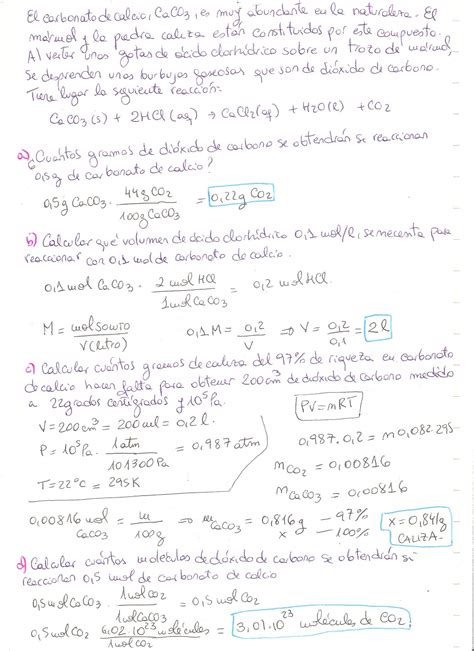 El carbonato de calcio, CaCO3, es muy abundante en la naturaleza. El
mármol y la piedra caliza están constituidos por este compuesto.
Al verter unas gotas de ácido clorhídrico sobre un trozo de mármol,
se desprenden unas burbujas gaseosas que son de dióxido de carbono.
Tiene lugar la siguiente reacción:
CaCO3(s) + 2HCl(aq) → CaCl2(aq) + H2O(l) + CO2
a) ¿Cuántos gramos de dióxido de carbono se obtendrán se reaccionan
0,5g de carbonato de calcio?
0,5g CaCO3 · 44g CO2 / 100g CaCO3 = 0,22g CO2
b) Calcular qué volumen de ácido clorhídrico 0,1 mol/l, se necesita para
reaccionar con 0,1 mol de carbonato de calcio.
0,1 mol CaCO3 · 2 mol HCl / 1 mol CaCO3 = 0,2 mol HCl.
M = mol soluto / V(litro)   0,1 M = 0,2 / V ⇒ V = 0,2 / 0,1 = 2l
c) Calcular cuántos gramos de caliza del 97% de riqueza en carbonato
de calcio hacen falta para obtener 200 cm³ de dióxido de carbono medido
a 22 grados centígrados y 10⁵ Pa.
V = 200 cm³ = 200 ml = 0,2 l.
P = 10⁵ Pa · 1 atm / 101300 Pa = 0,987 atm
T = 22°C = 295K
PV = nRT
0,987 · 0,2 = n 0,082 · 295
nCO2 = 0,00816
nCaCO3 = 0,00816
0,00816 mol CaCO3 = m / 100g ⇒ mCaCO3 = 0,816 g — 97%
x — 100%
x = 0,841g
CALIZA.
d) Calcular cuántos moléculas de dióxido de carbono se obtendrán si
reaccionan 0,5 mol de carbonato de calcio
0,5 mol CaCO3 · 1 mol CO2 / 1 mol CaCO3 = 0,5 mol CO2
0,5 mol CO2 · 6,02·10²³ moléculas / 1 mol CO2 = 3,01·10²³ moléculas de CO2.